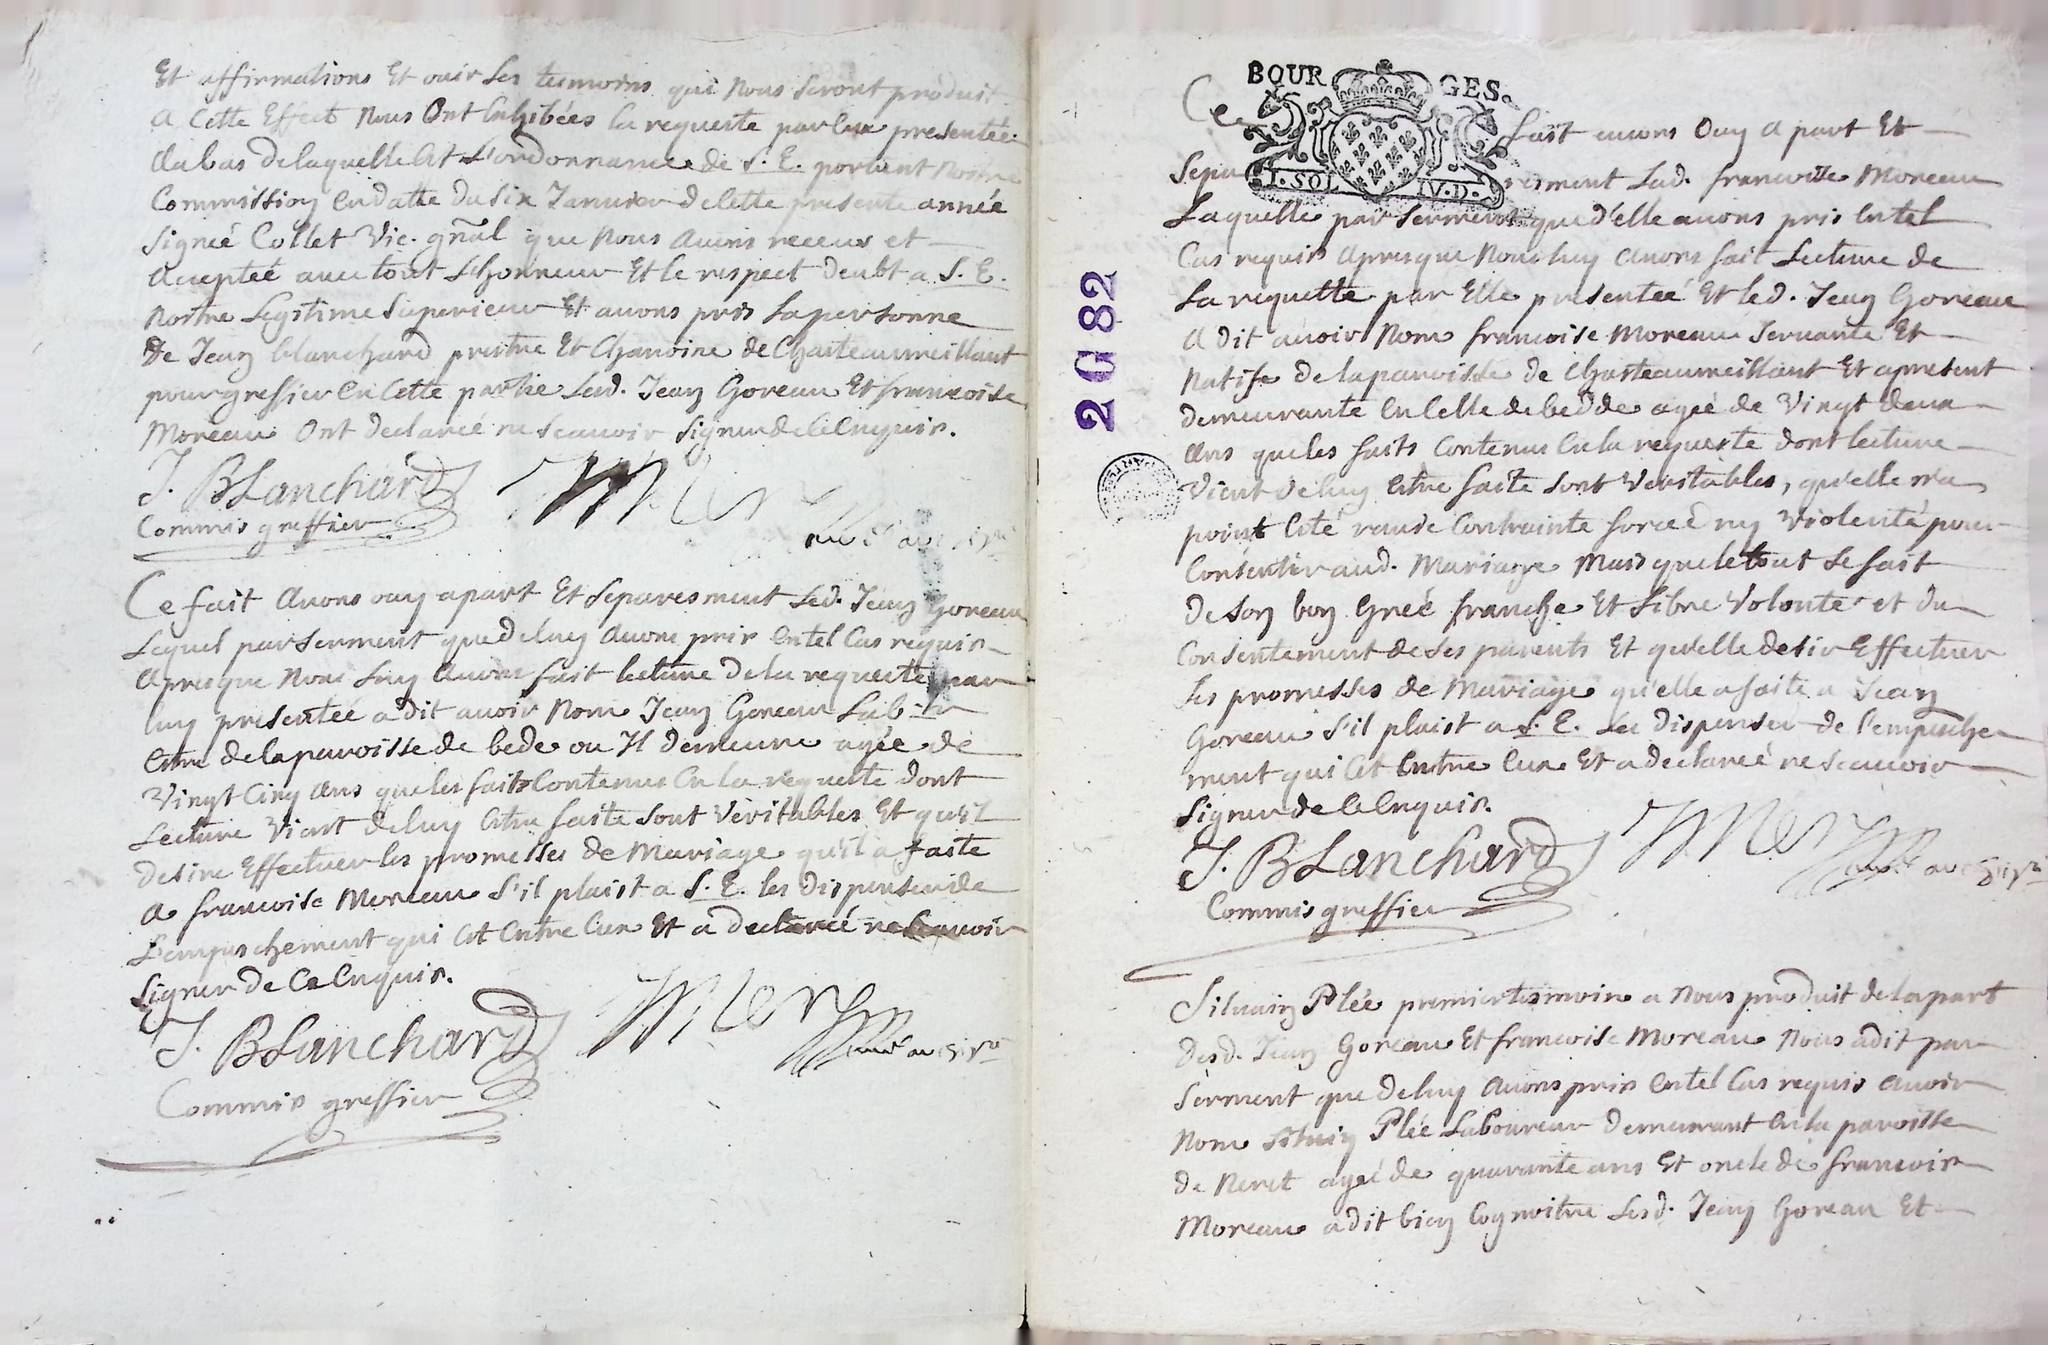 Et affirmations Et ouir Les tesmoins qui Nous seront produit
a Cette Effect Nous Ont Exhibées la requeste par Eux presentée
Au bas de laquelle Est L'ordonnance de S. E. portant Nostre
Commission En datte du six Januier de Cette presente année
signée Collet Vic. gñal que Nous Auons receue et
Acceptée auec tout L'honneur Et le respect deubt a S. E.
Nostre Legitime Superieur Et auons pris La personne
De Jean blanchard prestre Et Chanoine de Chasteaumeillant
pour greffier En Cette partie Led. Jean Goreau Et francoise
Moreau Ont declaré ne scauoir signer de Ce Enquis.
J. BLanchard
Commis greffier
Ce fait Auons ouy apart Et separesment Led. Jean Goreau
Lequel par serment que de luy Auons pris En tel Cas requis
Apres que Nous Luy Auons fait lecture de la requeste par
luy presentée a dit auoir Nom Jean Goreau Lab-r
Estre de la paroisse de bede ou Il demeure agée de
Vingt Cinq Ans que les faits Contenus En la requeste dont
Lecture Vient de luy Estre faite sont Veritables Et qu'il
desire Effectuer les promesses de Mariage qu'il a faite
A francoise Moreau s'il plaist a S. E. les dispenser de
L'empeschement qui Est Entre Eux Et a declaré ne scauoir
signer de Ce Enquis.
J. BLanchard
Commis greffier
BOUR GES.
Ce fait auons Ouy a part Et
J. SOL IV. D.
Sepa resment Lad. francoise Moreau
Laquelle par serment que d'elle auons pris En tel
Cas requis Apres que Nous luy Auons fait Lecture de
La requette par Elle presenteé Et led. Jean Goreau
A dit auoir Nom francoise Moreau Seruante Et
Natife de la paroisse de Chasteaumeillant Et apresent
demeurante En Celle de bedde ageé de Vingt deux
Ans que les faits Contenus En la requeste dont lecture
Vient de luy Estre faite sont Veritables, qu'elle n'a
point Eté Contrainte forceé ny Violenté pour
Consentir aud. Mariage Mais que le tout se fait
de son bon Greé franche Et Libre Volonté et du
Consentement de ses parents Et qu'elle desir Effectuer
les promesses de Mariage qu'elle a faite a Jean
Goreau s'il plaist a S. E. Les dispenser de l'empesche
ment qui Est Entre Eux Et a declareé ne scauoir
signer de Ce Enquis.
J. BLanchard
Commis greffier
2 G 82
Siluain Plée premier tesmoin a Nous produit de la part
desd. Jean Goreau Et francoise Moreau Nous a dit par
serment que de luy Auons pris En tel Cas requis Auoir
Nom Siluain Plée Laboureur demeurant En la paroisse
de Neret agé de quarante ans Et oncle de francoise
Moreau a dit bien Cognoitre Lesd. Jean Goreau Et